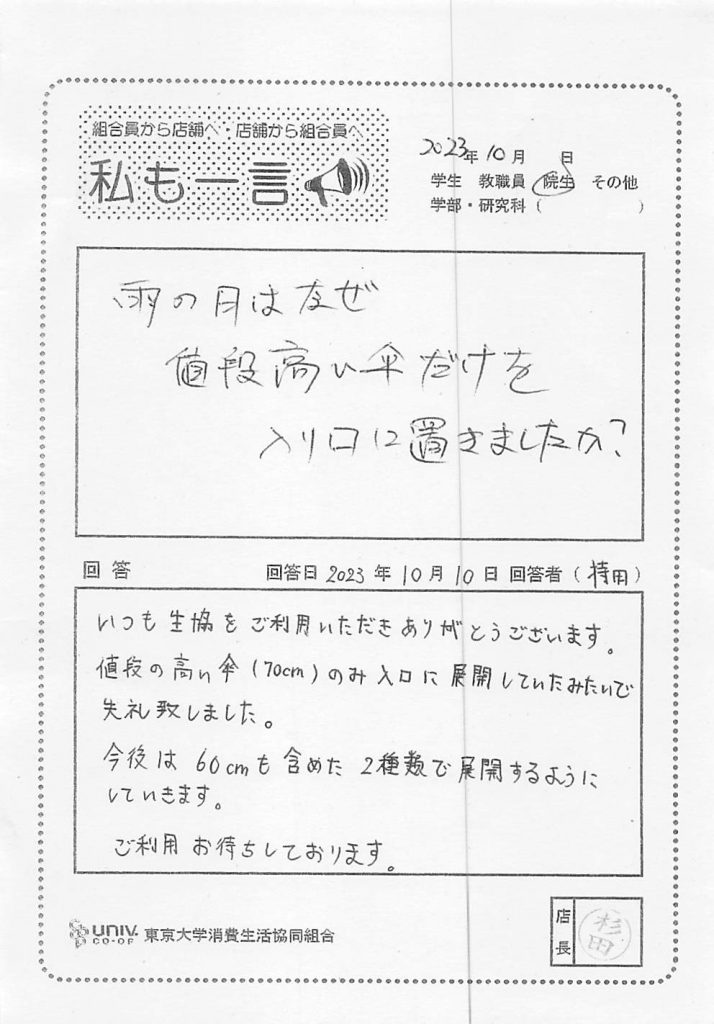 組合員から店舗へ・店舗から組合員へ
私も一言
2023年10月 日
学生 教職員 院生 その他
学部・研究科( )
雨の日はなぜ
値段高い傘だけを
入り口に置きましたか?
回答 回答日 2023年10月10日 回答者(持田)
いつも生協をご利用いただきありがとうございます。
値段の高い傘(70cm)のみ入口に展開していたみたいで
失礼致しました。
今後は60cmも含めた2種類で展開するように
していきます。
ご利用お待ちしております。
UNIV.
CO-OP 東京大学消費生活協同組合
店長
杉田